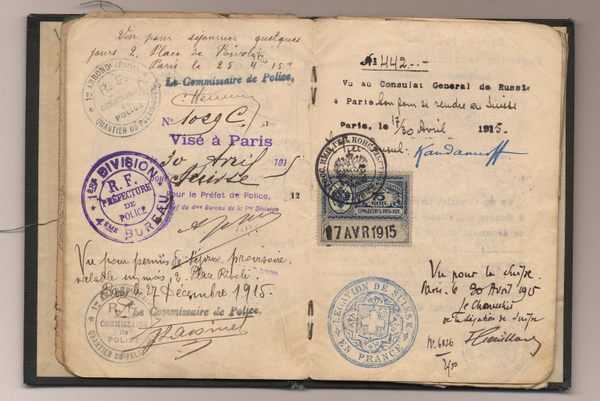 Vu pour séjourner quelques
jours 2, Place de Rivoli
Paris le 25 4 15
Le Commissaire de Police,
1er ARRONDt (Paris)
R. F.
COMMISSARIAT
DE
POLICE
QUARTIER DU PALAIS-ROYAL
No 1029 C.
Visé à Paris
30 Avril 1915
Suisse
Pour le Préfet de Police,
Chef du 4me Bureau de la 1re Division
12
1ère DIVISION
R. F.
PRÉFECTURE
DE
POLICE
4ÈME BUREAU
Vu pour permis de séjour provisoire,
valable un mois, 2, Place Rivoli
Paris le 27 Décembre 1915.
Le Commissaire de Police,
COMMISSARIAT
DE
POLICE
No 442.-
Vu au Consulat General de Russie
à Paris bon pour se rendre en Suisse
Paris, le 17/30 Avril 1915.
Consul:
17 AVR 1915
LÉGATION DE SUISSE
EN FRANCE
Vu pour la Suisse
Paris. le 30 Avril 1915
Le Chancelier
de la Légation de Suisse